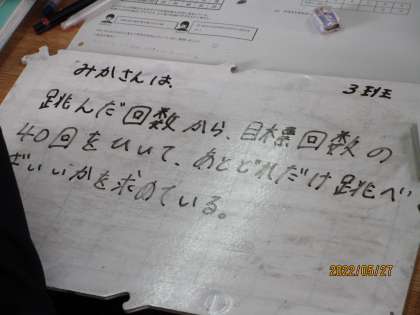 みかさんは、
3班
跳んだ回数から、目標回数の
40回をひいて、あとどれだけ跳べ
ばいいかを求めている。
2022/05/27